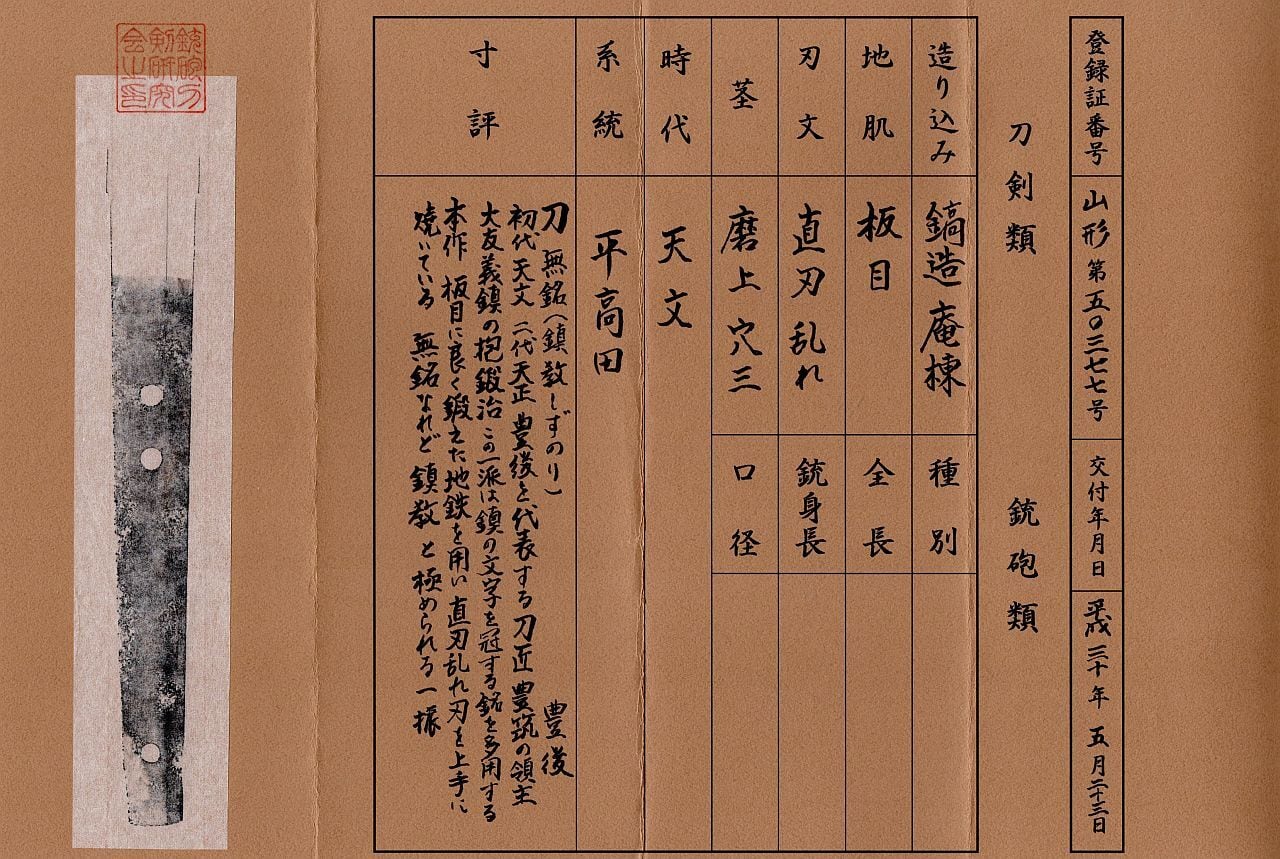 登録証番号 山形 第五〇三七七号 交付年月日 平成三十年 五月二十三日
刀剣類 銃砲類
造り込み 鎬造 庵棟 種別
地肌 板目 全長
刃文 直刃乱れ 銃身長
茎 磨上 穴三 口径
時代 天文
系統 平高田
寸評
刀 無銘(鎮教しずのり) 豊後
初代天文 二代天正 豊後を代表する刀匠 豊筑の領主
大友義鎮の抱鍛冶 この一派は鎮の文字を冠する銘を多用する
本作 板目に良く鍛えた地鉄を用い 直刃乱れ刃を上手に
焼いている 無銘なれど 鎮教 と極められる一振
銃砲刀
剣研究
会之印